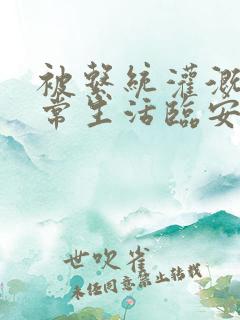 被繫統灌溉
常生活臨安
世吹雀
未经同意禁止转载